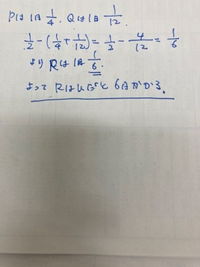 Pは1日 1/4. Qは1日 1/12.
1/2 - (1/4 + 1/12) = 1/2 - 4/12 = 1/6
より Rは1日 1/6.
よって Rはひとりだと 6日かかる.